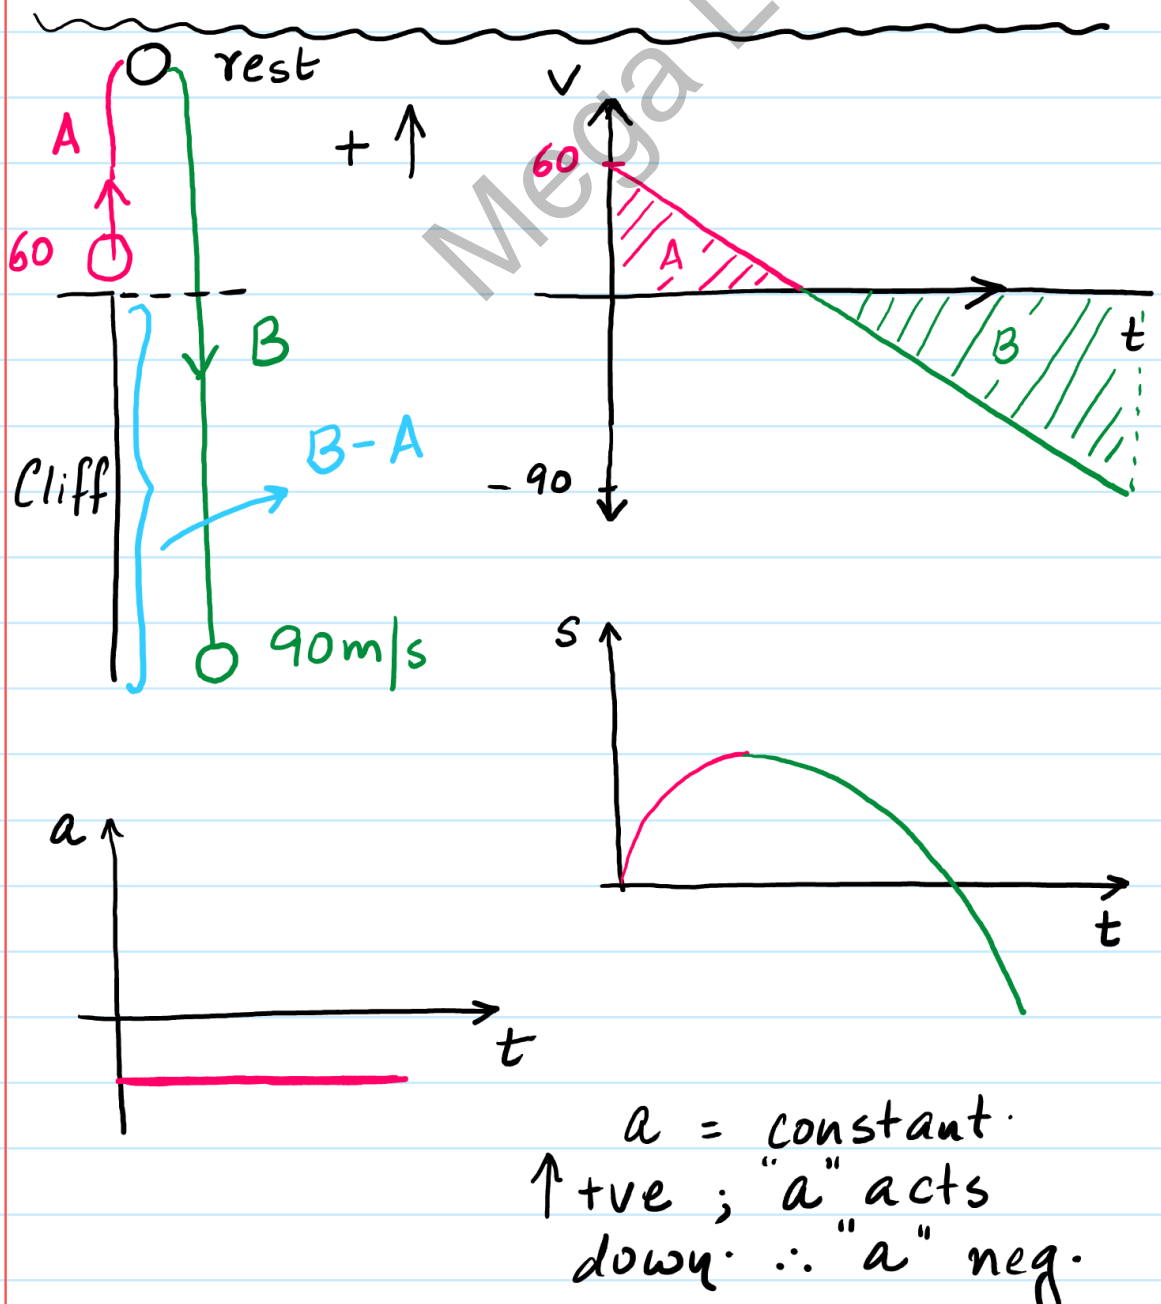 rest
A
+ ↑
60
B
B - A
Cliff
90m/s
v
60
A
B
t
- 90
s
t
a
t
a = constant.
↑ +ve ; "a" acts
down. ∴ "a" neg.
Mega L